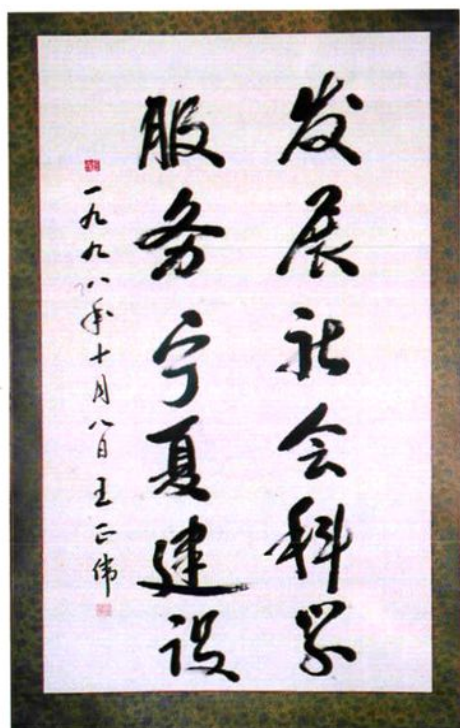 发展社会科学
服务宁夏建设
一九九八年十月八日王正伟